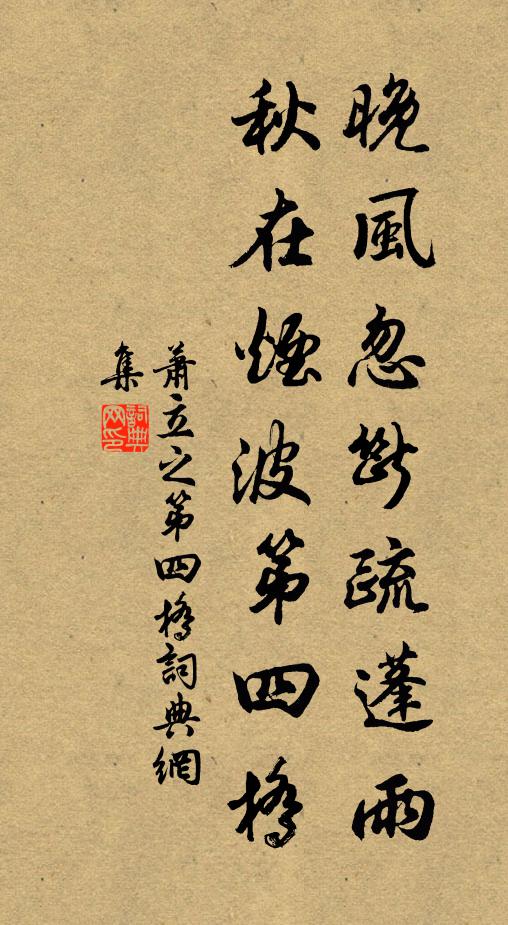 晚風忽斷疏蓬雨
秋在煙波第四橋
蕭立之第四橋詞典網
集
詞典网印